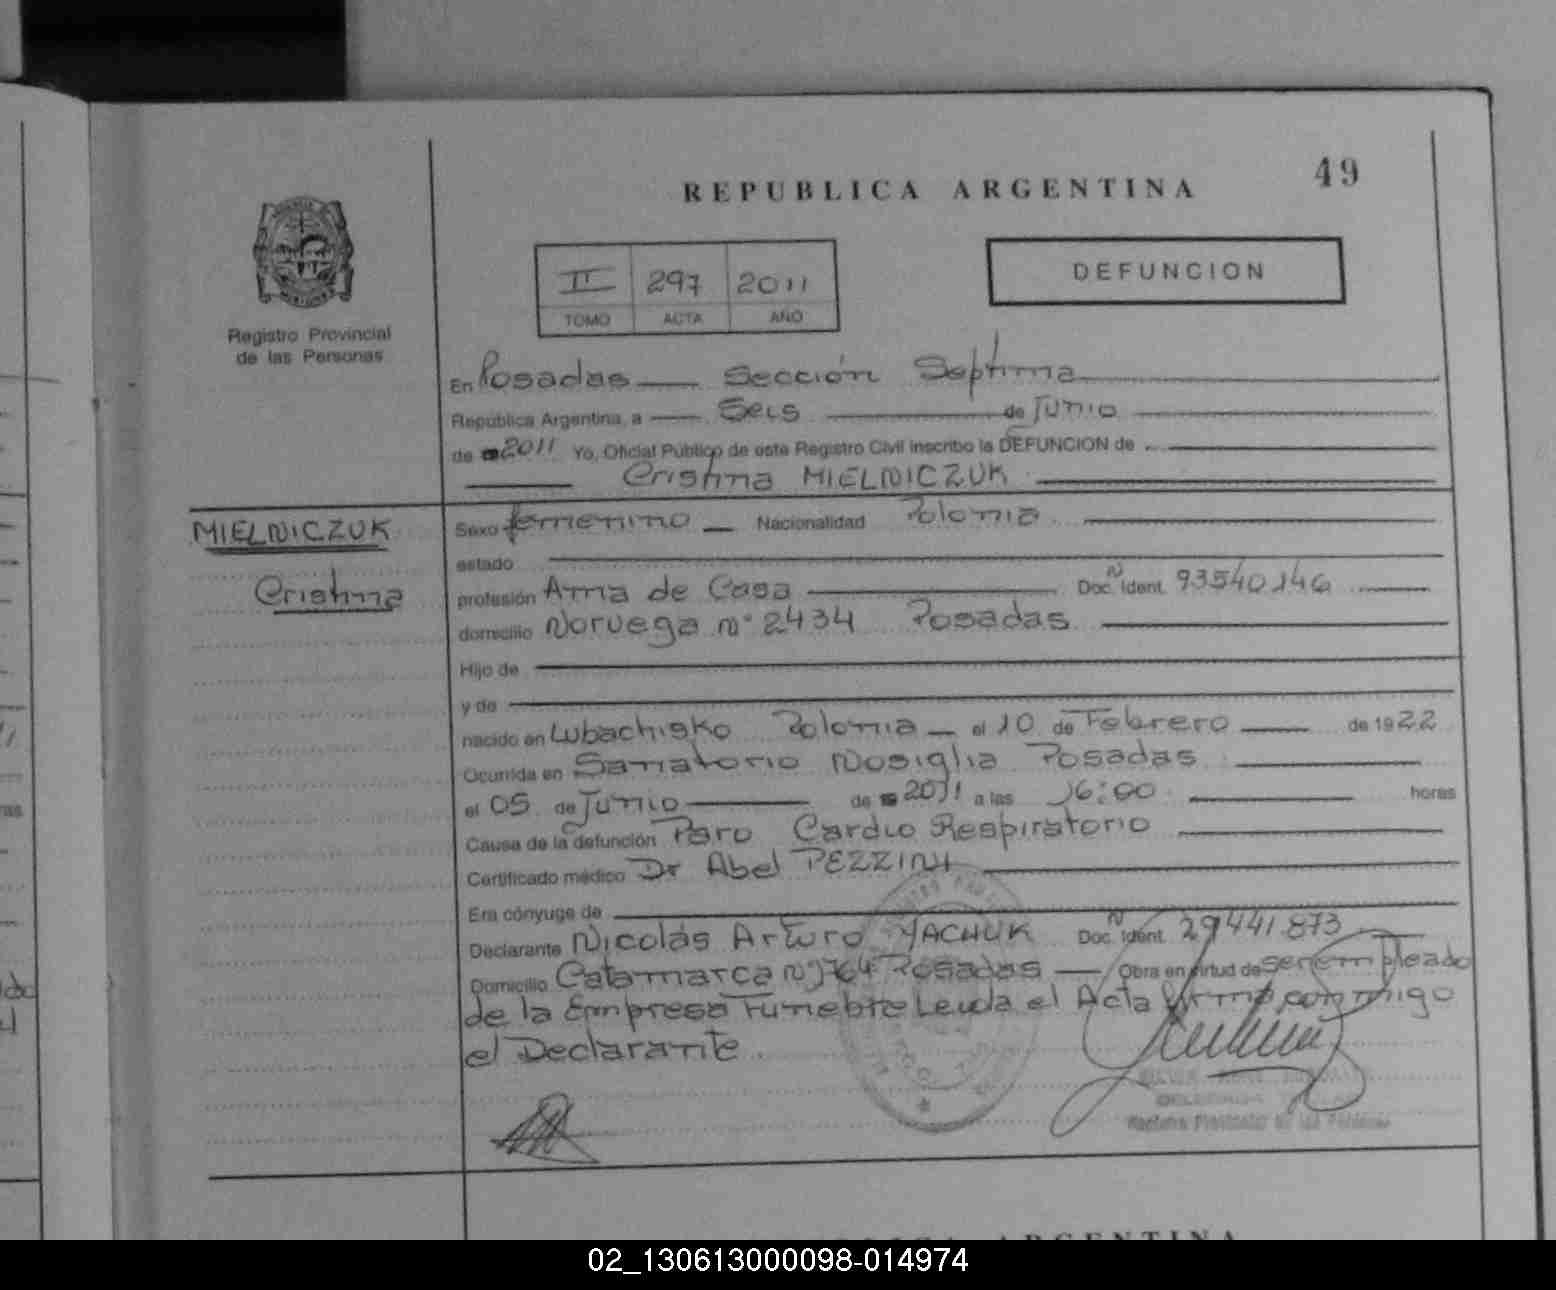 49
REPUBLICA ARGENTINA
II 297 2011
TOMO ACTA AÑO
DEFUNCION
Registro Provincial
de las Personas
En Posadas Sección Septima
República Argentina, a Seis de Junio
de 2011 Yo, Oficial Público de este Registro Civil inscribo la DEFUNCION de
Cristina MIELNICZUK
MIELNICZUK
Cristina
Sexo femenino Nacionalidad Polonia
estado
profesión Ama de Casa Doc. Ident. Nº 93540146
domicilio Noruega nº 2434 Posadas
Hijo de
y de
nacido en Lubachisko Polonia el 10 de Febrero de 1922
Ocurrida en Sanatorio Nosiglia Posadas
el 05 de Junio de 2011 a las 16:00 horas
Causa de la defunción Paro Cardio Respiratorio
Certificado médico Dr Abel PEZZINI
Era cónyuge de
Declarante Nicolás Arturo YACHUK Doc. Ident. Nº 29441873
Domicilio Catamarca nº 1764 Posadas Obra en virtud de ser empleado
de la Empresa Funebre Leida el Acta firma conmigo
el Declarante
Registro Provincial de las Personas
REPUBLICA ARGENTINA
02_130613000098-014974